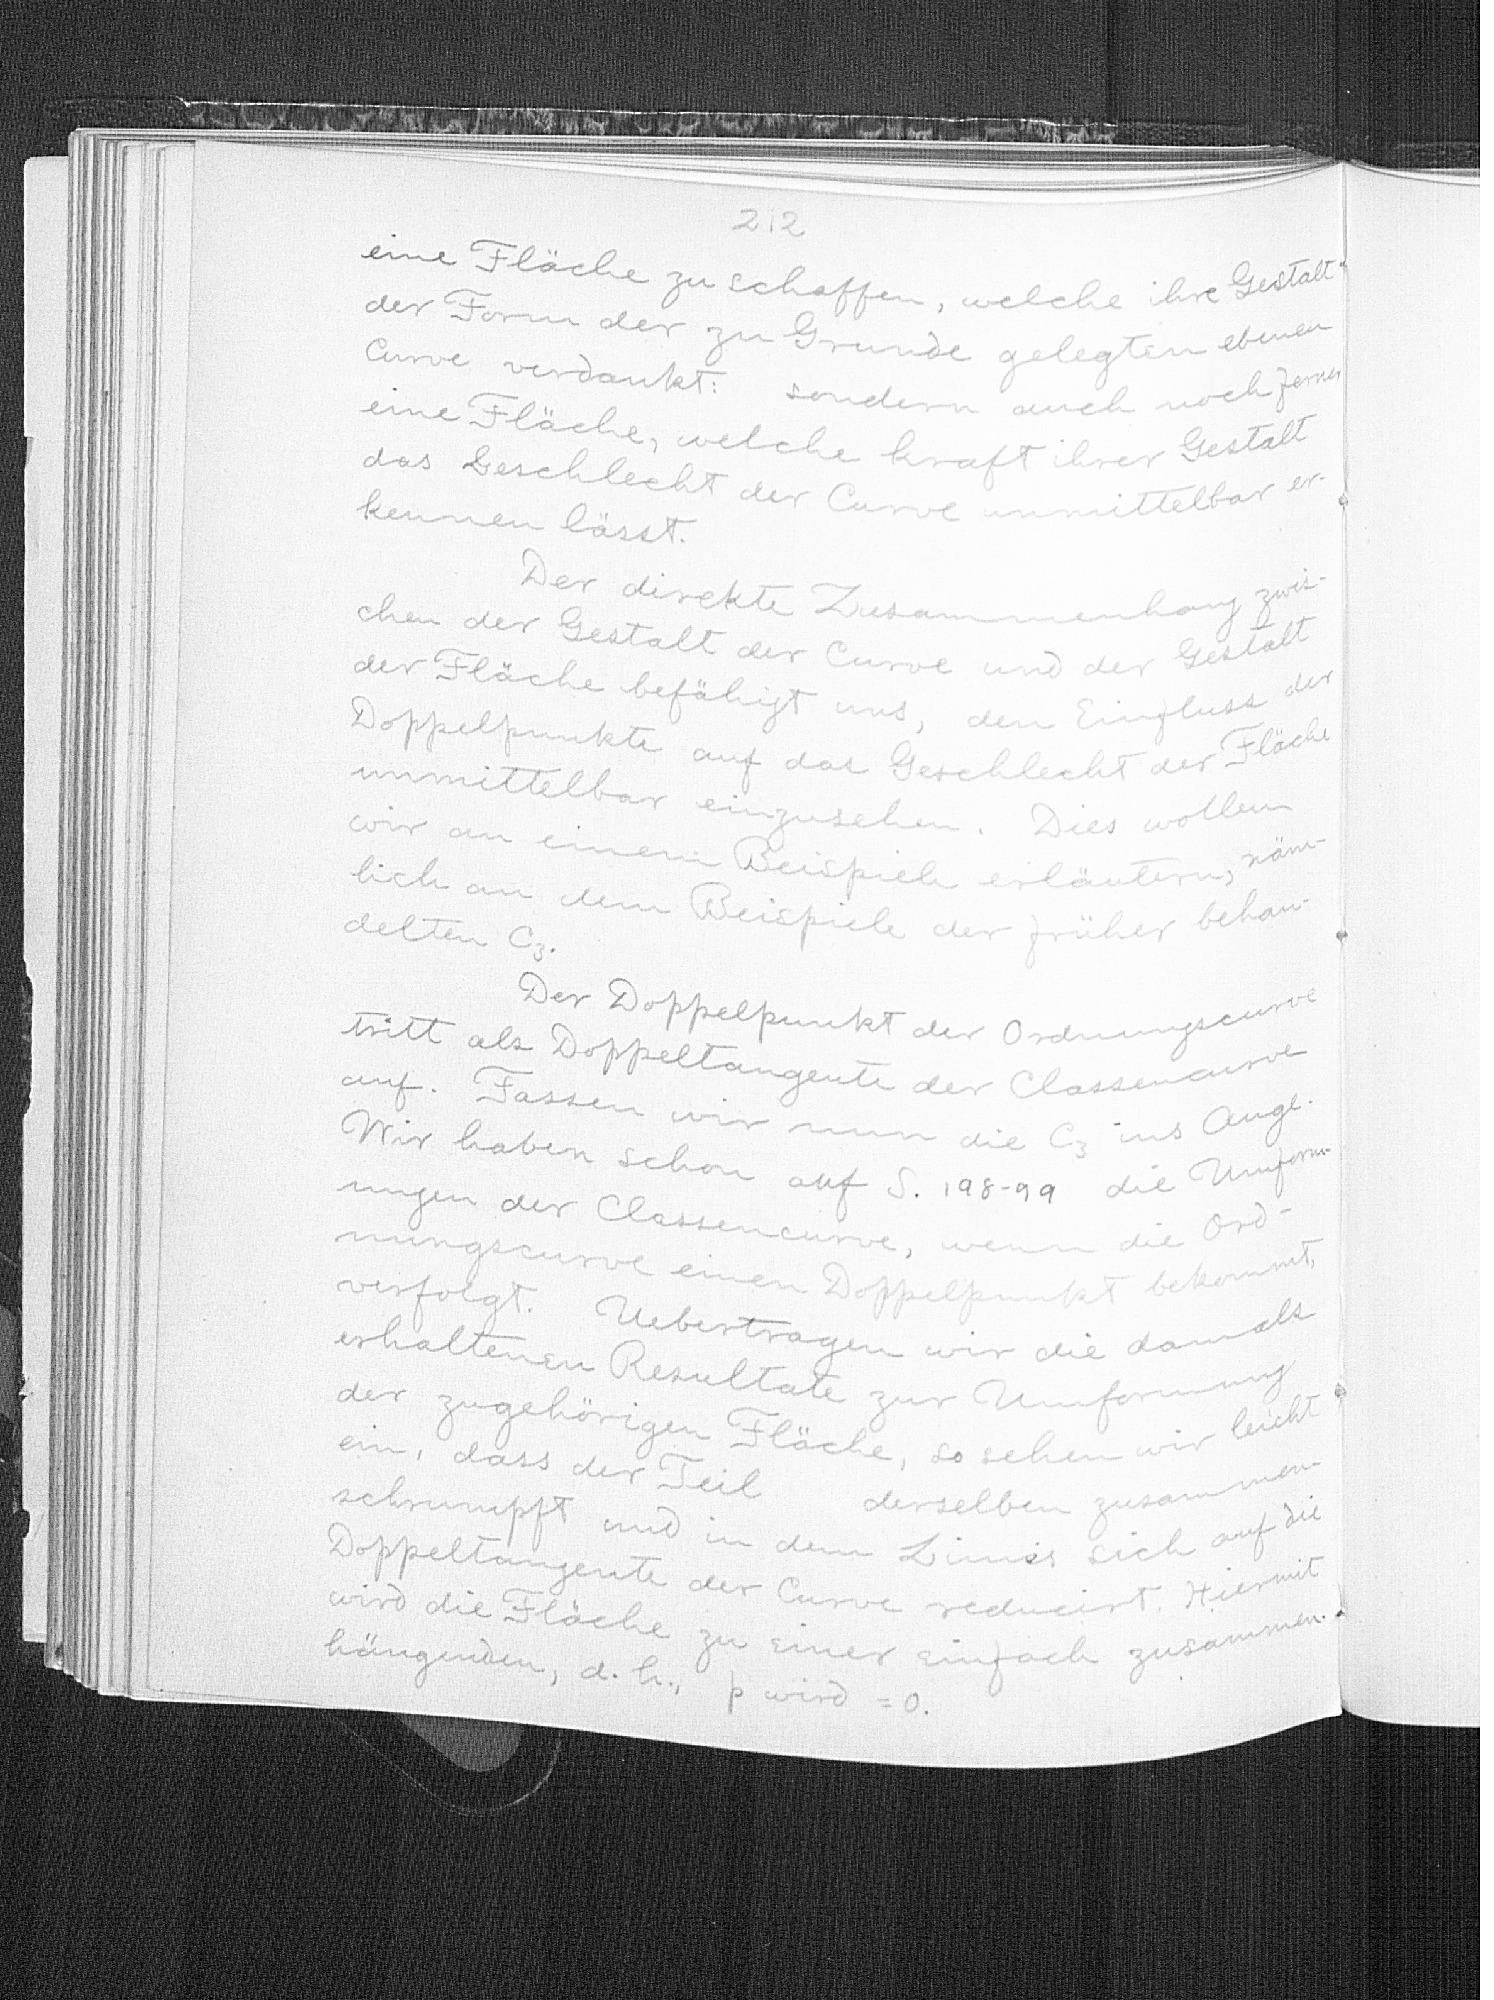 212
eine Fläche zu schaffen, welche ihre Gestalt
der Form der zu Grunde gelegten ebenen
Curve verdankt: sondern auch noch ferner
eine Fläche, welche kraft ihrer Gestalt
das Geschlecht der Curve unmittelbar er-
kennen lässt.
Der direkte Zusammenhang zwis-
chen der Gestalt der Curve und der Gestalt
der Fläche befähigt uns, den Einfluss der
Doppelpunkte auf das Geschlecht der Fläche
unmittelbar einzusehen. Dies wollen
wir an einem Beispiele erläutern, näm-
lich an dem Beispiele der früher behan-
delten C₃.
Der Doppelpunkt der Ordnungscurve
tritt als Doppeltangente der Classencurve
auf. Fassen wir nun die C₃ ins Auge.
Wir haben schon auf S. 198-99 die Umform-
ungen der Classencurve, wenn die Ord-
nungscurve einen Doppelpunkt bekommt,
verfolgt. Uebertragen wir die damals
erhaltenen Resultate zur Umformung
der zugehörigen Fläche, so sehen wir leicht
ein, dass der Teil derselben zusammen-
schrumpft und in dem Limes sich auf die
Doppeltangente der Curve reducirt. Hiermit
wird die Fläche zu einer einfach zusammen-
hängenden, d. h., p wird = 0.